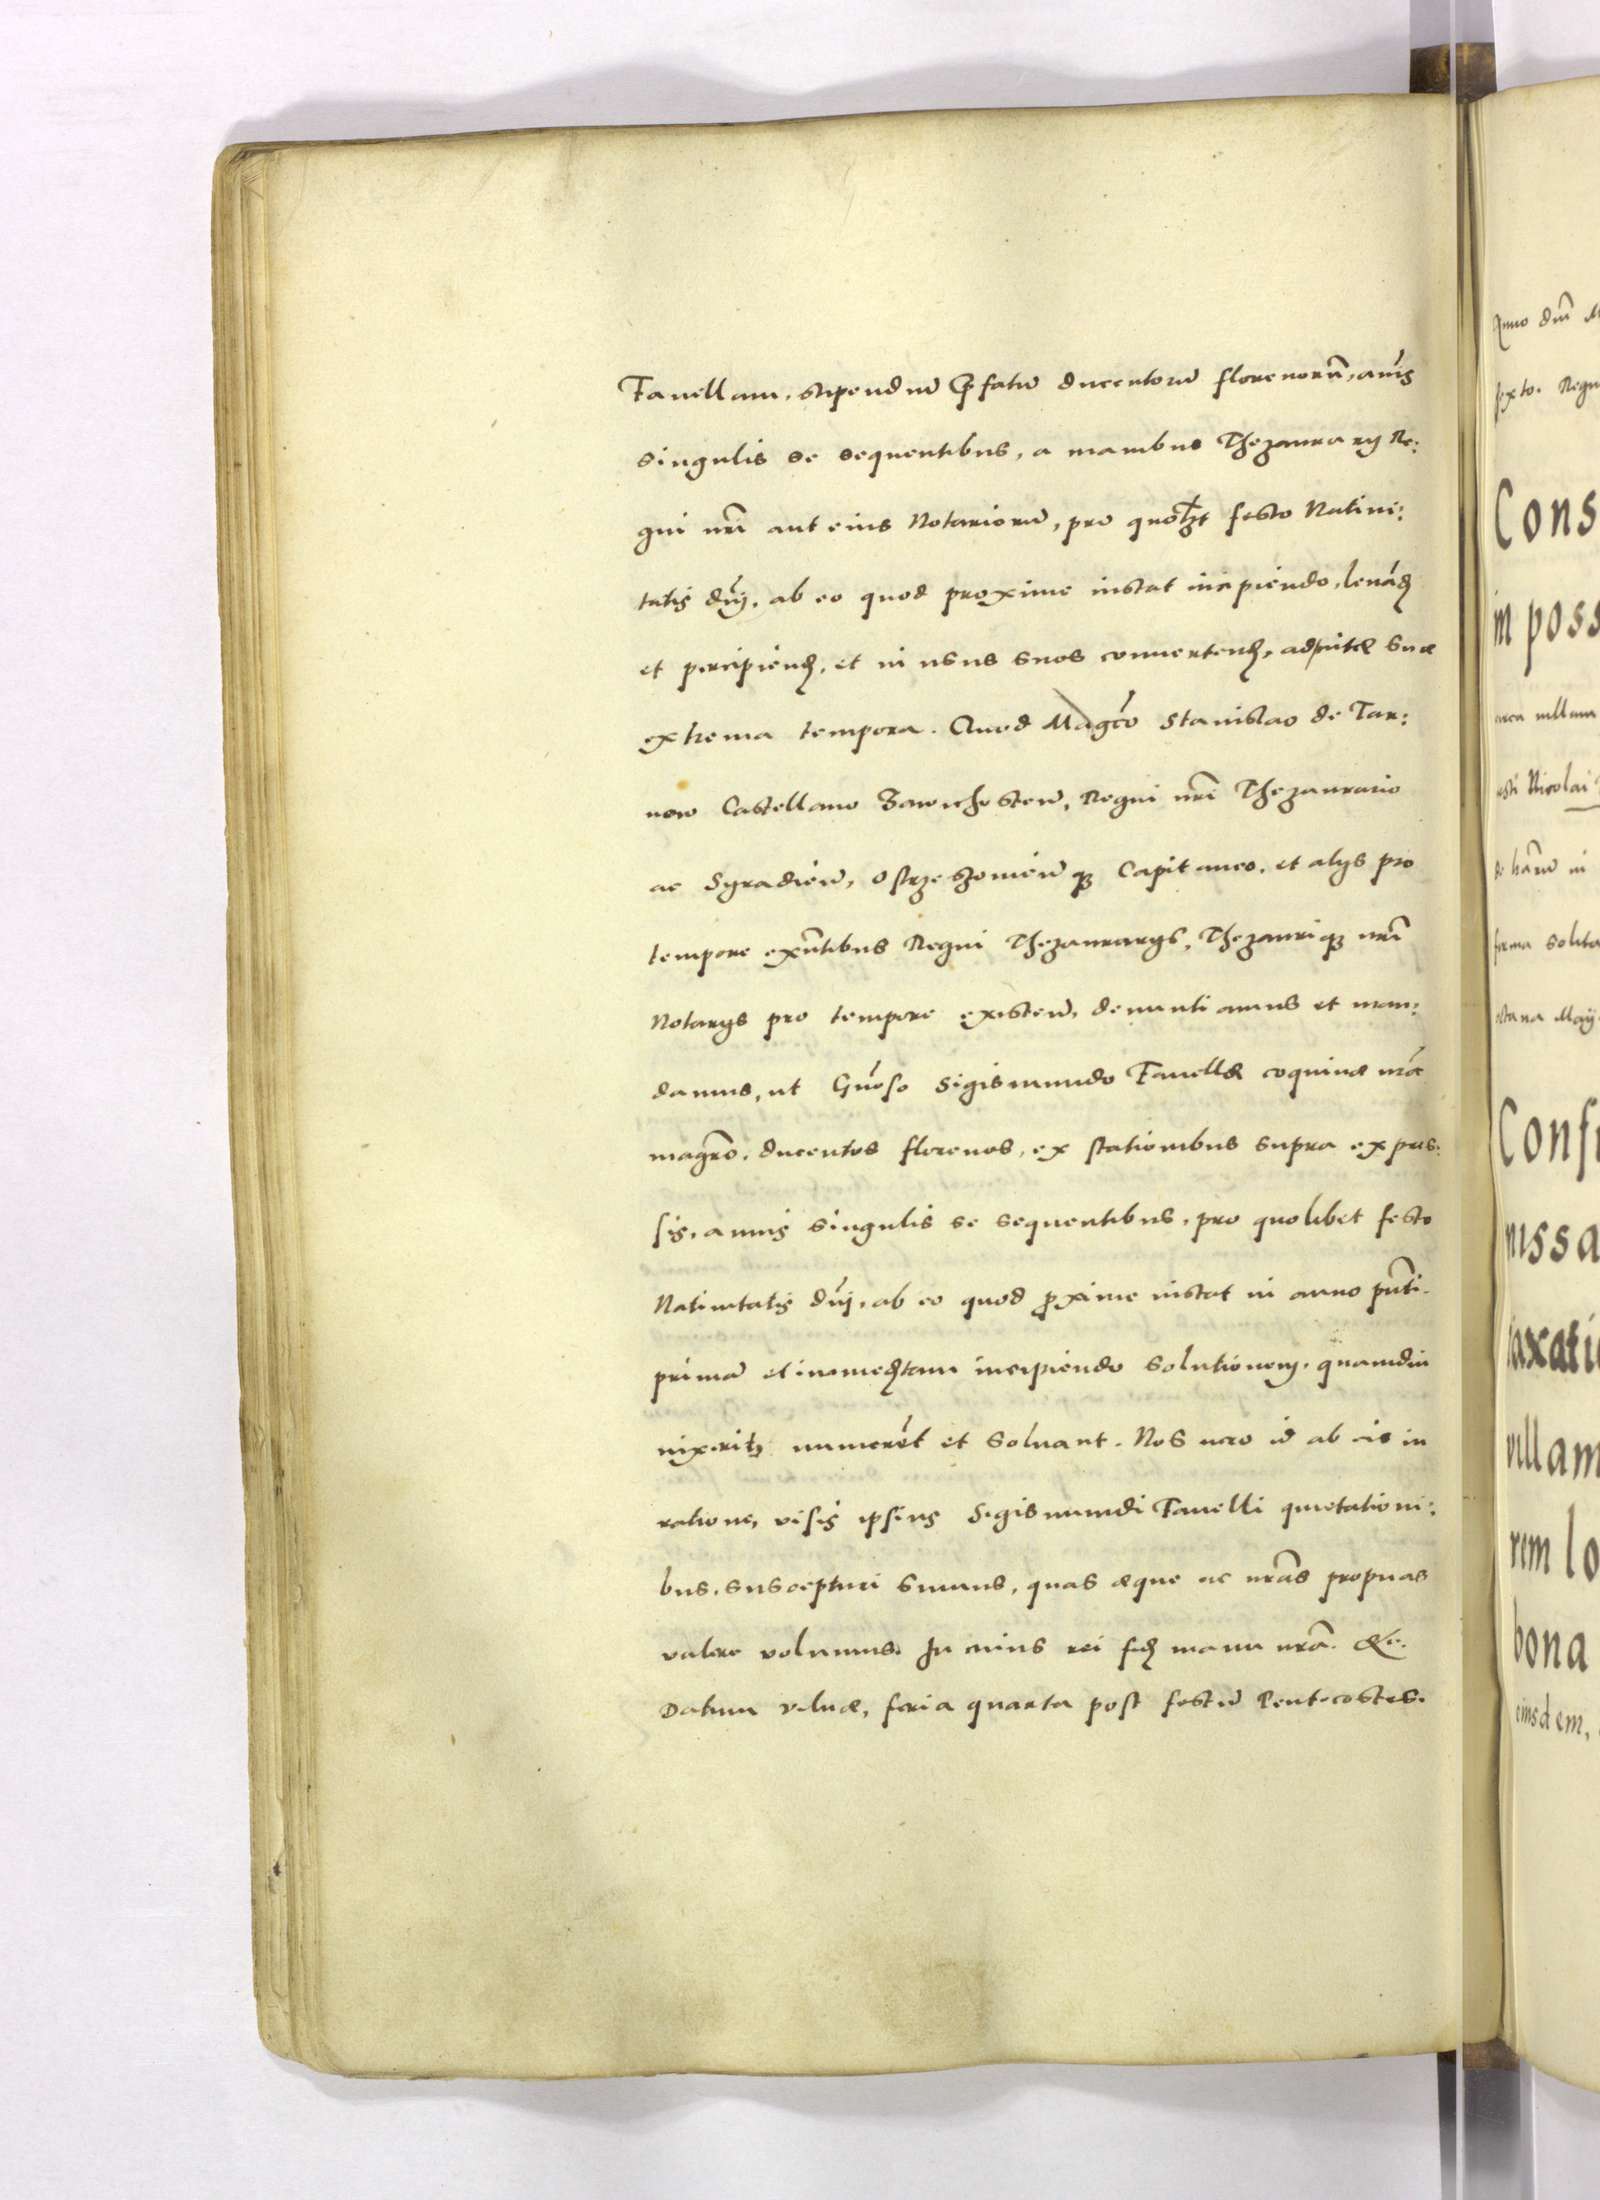 Fanellam, stipendiũ p̃fatũ ducentorũ florenorũ, anñis
singulis se sequentibus, a manibus Thezaurarij Re:
gni nr̃i aut eius Notariorũ, pro quolibet festo Natiui:
tatis dñi, ab eo quod proxime instat incipiendo, leuãd
et percipiend, et in usus suos conuertend, ad uitæ suæ
extrema tempora. Quod Magco Stanislao de Tar:
now Castellano Zawichosteñ, Regni nr̃i Thezaurario
ac Syradieñ, Ostrzeszouieñ q₃ Capitaneo, et alijs pro
tempore exñtibus Regni Thezaurarijs, Thezauriq₃ nr̃i
Notarijs pro tempore existeñ, denuntiamus et man:
damus, ut Gñoso Sigismundo Fanellæ coquinæ nr̃æ
magr̃o, ducentos florenos, ex stationibus supra expres:
sis, annis singulis se sequentibus, pro quolibet festo
Natiuitatis dñi, ab eo quod proxime instat in anno pñti.
primã et immediatam incipiendo solutionem, quamdiu
uixerit, numerẽt et soluant. Nos uero id ab eis in
ratione, visis ipsius Sigismundi Fanelli quietationi:
bus, suscepturi sumus, quas æque ac nr̃as proprias
valere volumus. In cuius rei fid manu nr̃a. &c.
Datum Vilnæ, feria quarta post festũ Pentecostes.
Anno dñi
sexto. Regn
Cons
in poss
nissa
taxati
villam
rem lo
bona
eiusdem,
Nicolai
forma solita
octaua Maij
Confi